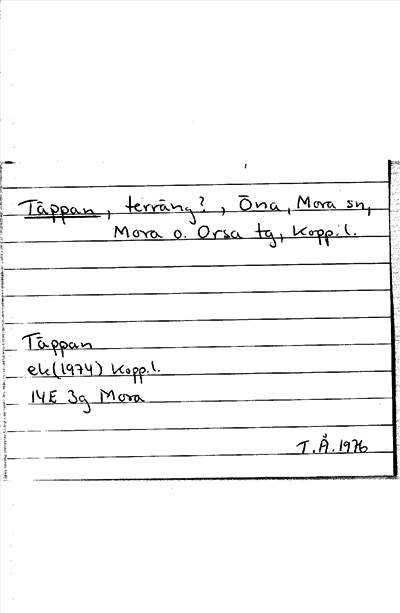 Täppan, terräng?, Öna, Mora sn,
Mora o. Orsa tg, Kopp.l.
Täppan
ek(1974) Kopp.l.
14E 3g Mora
T.Å.1976